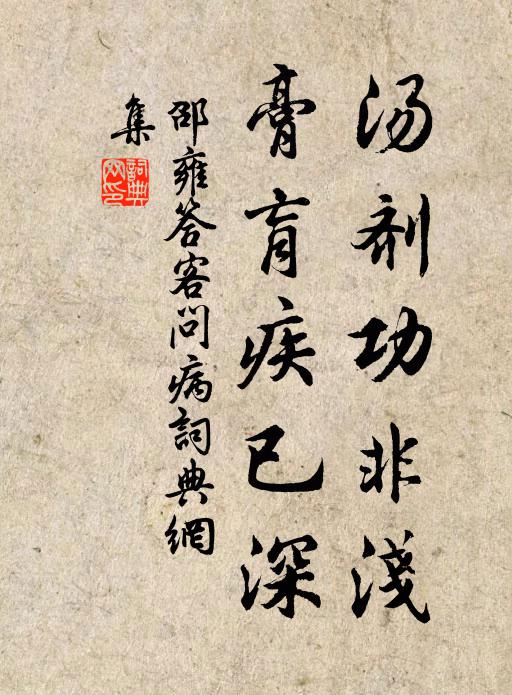 汤剂功非淺
膏肓疾已深
邵雍答客問病詞典網
集
詞典网印